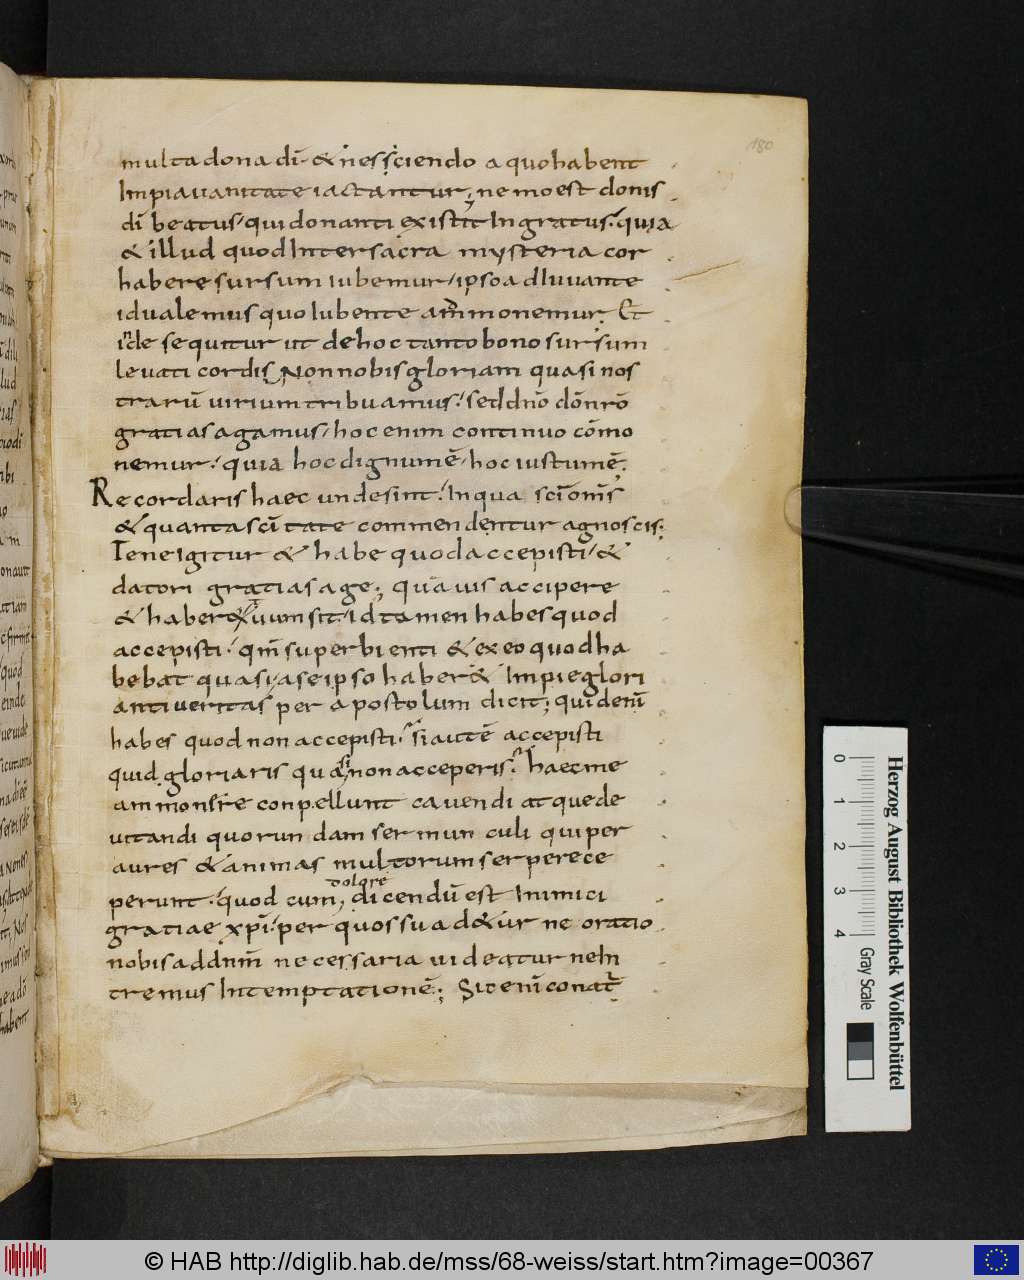 180
multa dona di. & nesciendo a quo habent
Impia uanitate iactantur; nemo est donis
di beatus, qui donanti existit Ingratus. quia
& illud quod Inter sacra mysteria cor
habere sursum iubemur, ipso adIuuante
id ualemus quo Iubente ammonemur. Et
inde sequitur ut de hoc tanto bono sursum
leuati cordis, Non nobis gloriam quasi nos
trarū uirium tribuamus. sed dño dō nrō
gratias agamus, hoc enim continuo cōmo
nemur. quia hoc dignum ē, hoc iustum ē.
Recordaris haec unde sint. In qua
& quanta scitate commendentur agnoscis;
Tene igitur & habe quod accepisti, &
datori gratias age; quāuis accipere
& habere uum sit, id tamen habes quod
accepisti. qm̄ superbienti & ex eo quod ha
bebat quasi a se ipso haber& Impie glori
anti ueritas per apostolum dicit; quid enī
habes quod non accepisti. si autē accepisti
quid gloriaris quasi non acceperis. haec me
ammonere conpellunt cauendi atque de
uitandi quorundam sermunculi qui per
aures & animas multorum serpere ce
perunt. quod cum dolore dicendū est Inimici
gratiae xp̄i. per quos suad&ur ne oratio
nobis ad dnm̄ necessaria uideatur ne In
tremus Intemptationē; Sic enī conat
Herzog August Bibliothek Wolfenbüttel
0 1 2 3 4 Gray Scale
© HAB http://diglib.hab.de/mss/68-weiss/start.htm?image=00367